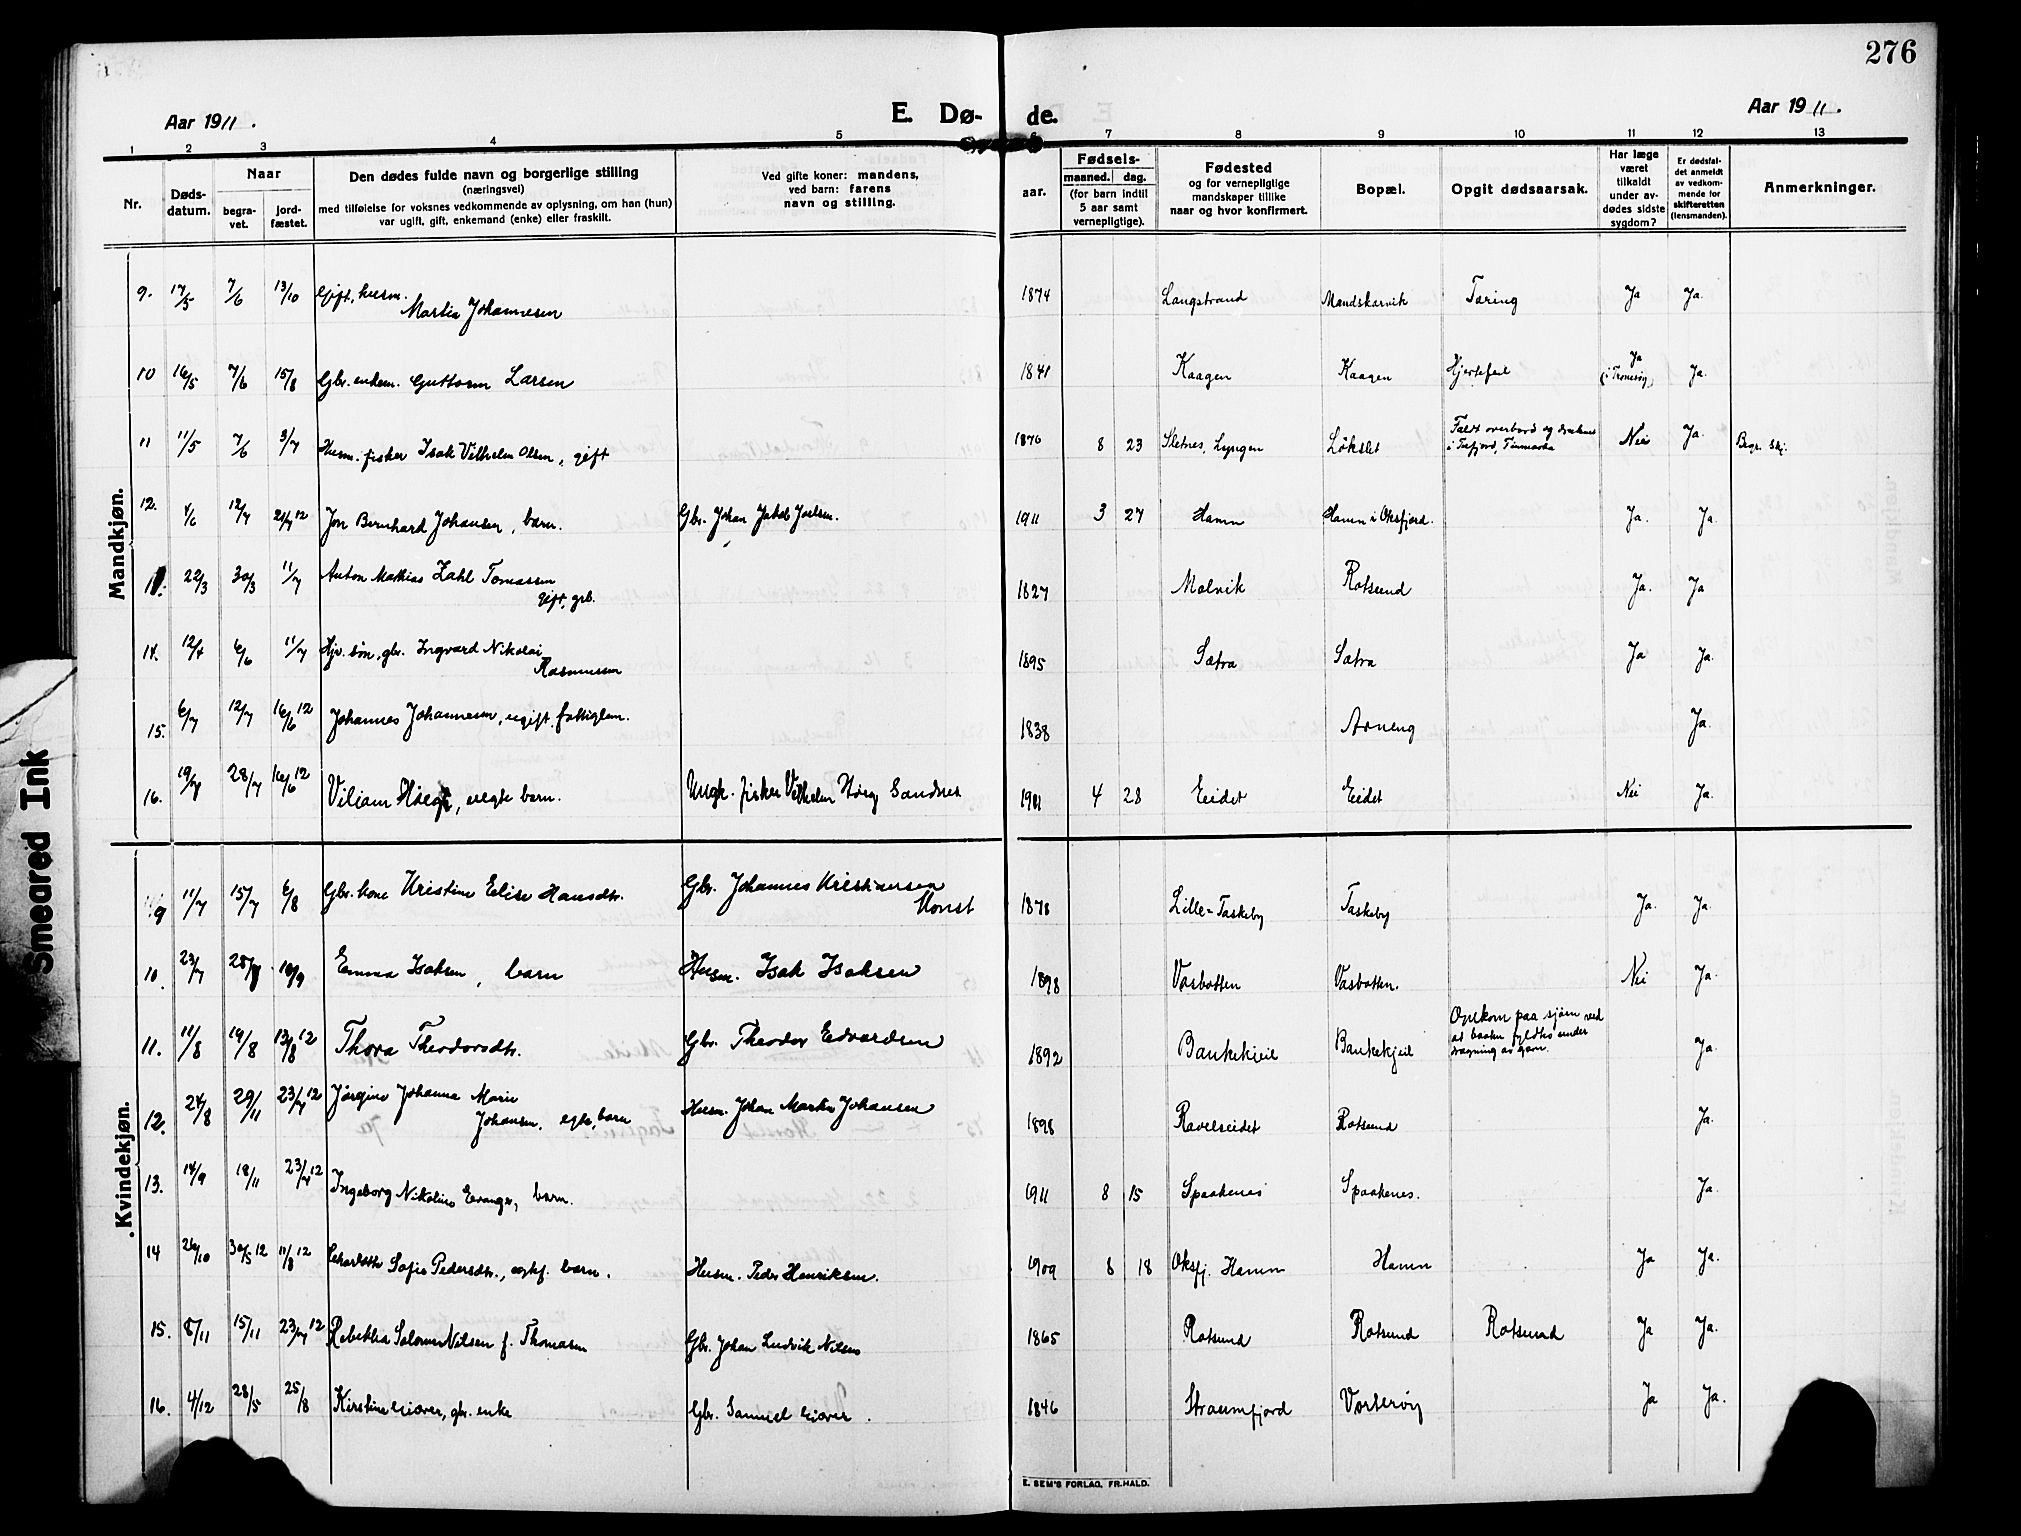 276
Aar 1911.
E. Dø-
de.
Aar 1911.
1 2 3 4 5 6 7 8 9 10 11 12 13
Nr.
Døds-
datum.
Naar
begra-
vet.
jord-
fæstet.
Den dødes fulde navn og borgerlige stilling
(næringsvei)
med tilføielse for voksnes vedkommende av oplysning, om han (hun)
var ugift, gift, enkemand (enke) eller fraskilt.
Ved gifte koner: mandens,
ved barn: farens
navn og stilling.
aar.
Fødsels-
maaned. dag.
(for barn indtil
5 aar samt
vernepligtige).
Fødested
og for vernepligtige
mandskaper tillike
naar og hvor konfirmert.
Bopæl.
Opgit dødsaarsak.
Har læge
været
tilkaldt
under av-
dødes sidste
sygdom?
Er dødsfal-
det anmeldt
av vedkom-
mende for
skifteretten
(lensmanden).
Anmerkninger.
Mandkjøn.
9. 17/5 7/6 13/10 Gift, husm.
Martin Johannesen 1874 Langstrand Mandskarvik Tæring Ja Ja.
10 16/5 7/6 15/8 Gbr. enkem. Guttorm Larsen 1841 Kaagen Kaagen Hjertefeil Ja
(i Tromsø) Ja.
11 11/5 7/6 3/7 Husm. fisker Isak Vilhelm Olsen, gift 1876 8 23 Sletnes, Lyngen Løkslet Faldt overbord og druknet
i Tufjord, Finmarken Nei Ja. Begr. Skj.
12. 4/6 12/7 21/7 12 Jon Bernhard Johansen, barn. Gbr. Johan Jakob Joelsen. 1911 3 27 Hamn Hamn i Oksfjord. Ja. Ja.
22/3 30/3 11/7 Anton Mathias Zahl Tomassen
gift, grb. 1827 Malvik Rotsund Ja. Ja
14. 12/4 6/6 11/7 Hjv. søn, gbr. Ingvard Nikolai
Rasmussen 1895 Sætra Sætra Ja Ja.
15. 6/7 12/7 16/6 12 Johannes Johannesen, ugift fattiglem. 1838 Arneng Ja.
16. 19/7 28/7 16/6 12 Viliam Høeg, uegte barn. Ungk. fisker Vilhelm Høeg Sandnes 1911 4 28 Eidet Eidet Nei Ja.
Kvindekjøn.
9 11/7 15/7 6/8 Gbr. kone Kristine Elise Hansdtr. Gbr. Johannes Kristiansen
Horst 1878 Lille-Taskeby Taskeby Ja. Ja.
10. 23/7 28/7 10/9 Emma Isaksen, barn Husm. Isak Isaksen 1898 Vasbotten Vasbotten. Nei Ja.
11. 11/8 19/8 13/8 12 Thora Theodorsdtr. Gbr. Theodor Edvardsen 1892 Bankekjeil Bankekjeil Omkom paa sjøen ved
at baaten fyldtes under
dragning av garn. Ja.
12. 24/8 29/11 23/7 12 Jørgine Johanna Marie
Johansen, egte barn Husm. Johan Martin Johansen 1898 Ravelseidet Rotsund Ja.
13. 14/9 18/11 23/7 12 Ingeborg Nikoline Evanger, barn. 1911 8 15 Spaakenes Spaakenes. Ja.
14 26/10 30/5 12 11/8 12 Charlotte Sofie Pedersdtr., barn. Husm. Peder Henriksen. 1909 8 18 Oksfj. Hamn Hamn Ja Ja.
15. 8/11 15/11 23/7 12 Rebekka Salomea Nilsen f. Thomasen Gbr. Johan Ludvik Nilsen 1865 Rotsund Rotsund Rotsund Ja Ja.
16. 4/12 28/5 25/8 Kirstine Giæver, gbr. enke Gbr. Samuel Giæver. 1846 Straumfjord Vorterøy Ja Ja.
E. SEM'S FORLAG, FR.HALD.
Smeared Ink